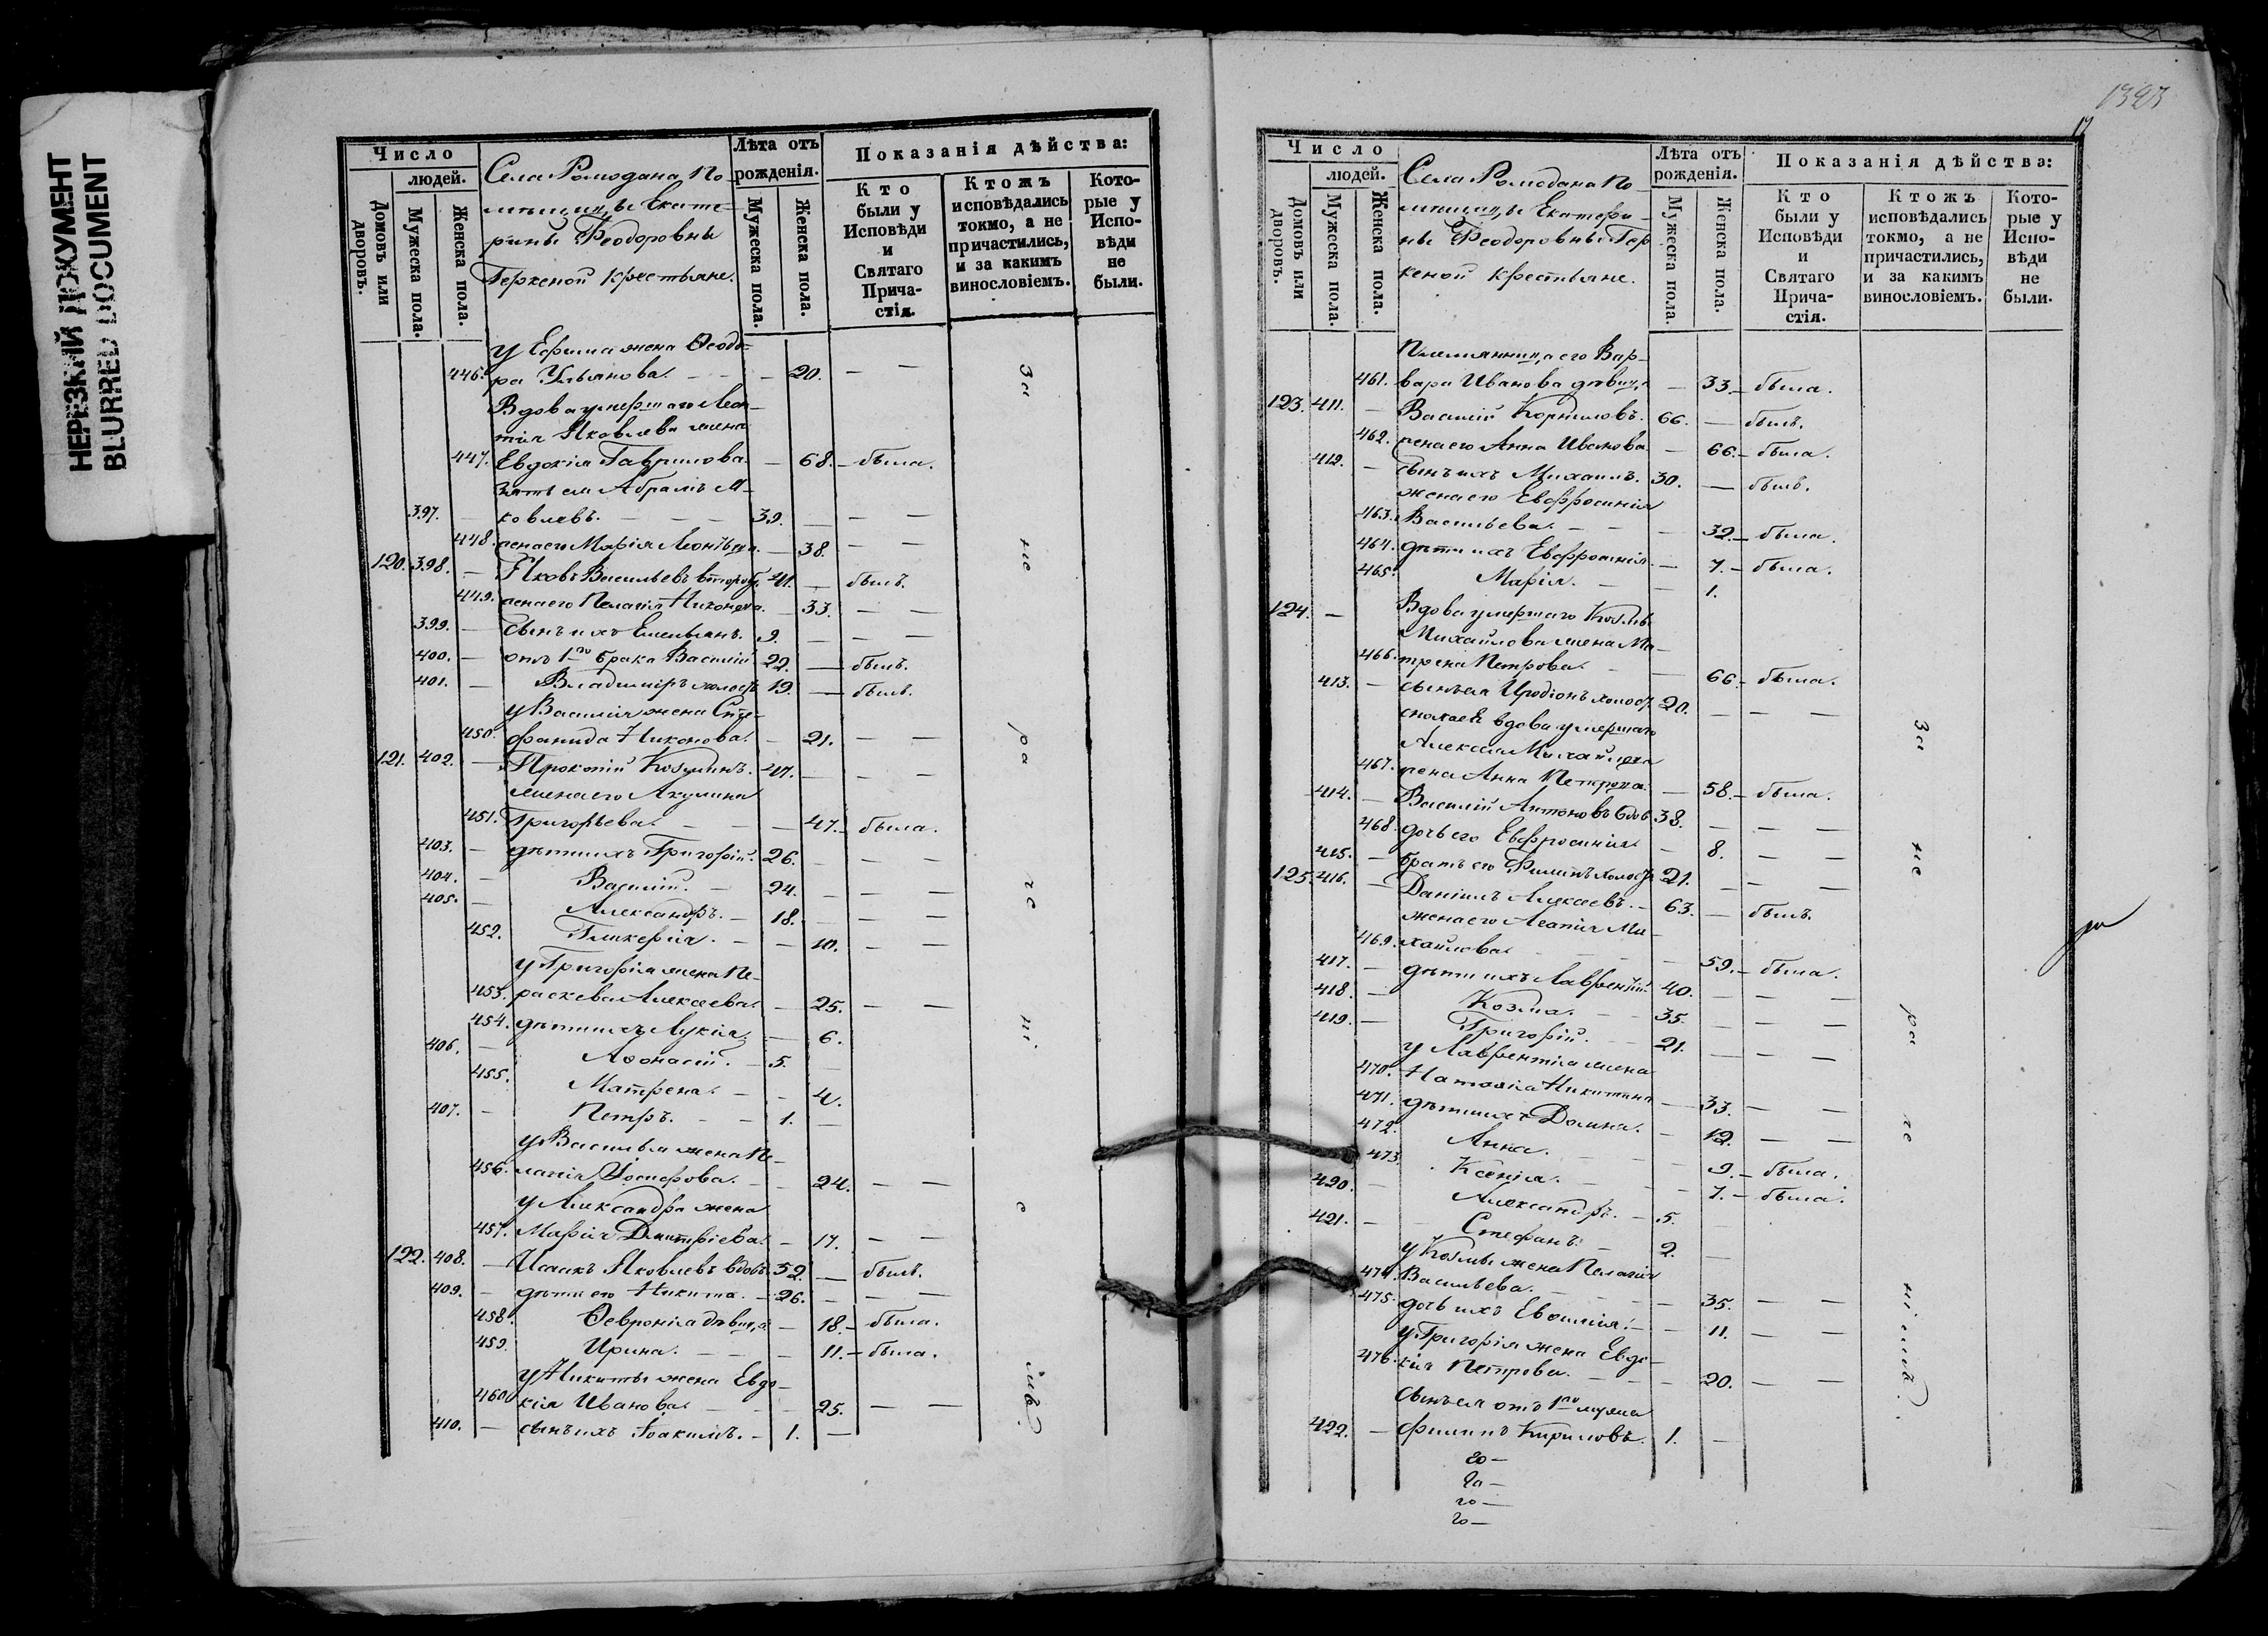 НЕРЕЗКИЙ ДОКУМЕНТ
BLURRED DOCUMENT
Число
людей.
Домовъ или дворовъ.
Мужеска пола.
Женска пола.
Села Ромодана По-
мѣщицы Екате-
рины Феодоровны
Герксной Крестьяне.
Лѣта отъ
рожденія.
Мужеска пола.
Женска пола.
Показанія дѣйства:
Кто были у Исповѣди и Святаго Прича-стія.
Ктожъ исповѣдались токмо, а не причастились, и за какимъ винословіемъ.
Кото-рые у Испо-вѣди не были.
У Ефима жена Ѳеодо-
446. ра Ульянова. — — — 20. — —
Вдова умершаго Леон-
тія Яковлева жена
447. Евдокія Гаврилова. — 68. — была.
Зять ея Абрамъ Я-
397. — ковлевъ. — — — 39. — — —
448. жена его Марія Леонтьева. — 38. — —
120. 398. — Яковъ Васильевъ второбр. 41. — былъ.
449. жена его Пелагія Никонова. — 33. — —
399. — сынъ ихъ Емельянъ. 9. — — —
400. — отъ 1го брака Василій 22. — былъ.
401. — Владиміръ холостъ 19. — былъ.
у Василія жена Сте-
450. фанида Никонова. — 21. — —
121. 402. — Прокопій Козминъ. 47. — — —
жена его Акулина
451. Григорьева. — — — 47. — была.
403. — дѣти ихъ Григорій. 26. — — —
404. — Василій. — 24. — — —
405. — Александръ. — 18. — — —
452. Гликерія. — — 10. — —
у Григорія жена Па-
453. раскева Алексеева. — 25. — —
454. дѣти ихъ Лукія. — 6.
406. — Аѳонасій. — 5. —
455. Матрена. — — 4.
407. — Петръ. — — 1. —
у Василья жена Пе-
456. лагія Іосифова. — — 24. — —
у Александра жена
457. Марія Дмитріева. — 17. — —
122. 408. — Исаакъ Яковлевъ вдовъ 52. — былъ.
409. — дѣти его Никита. — 26. — — —
458. Ѳевронія дѣвица — 18. — была.
459. Ирина. — — — 11. — была.
у Никиты жена Евдо-
460. кія Иванова. — — — 25. — —
410. — сынъ ихъ Іоакимъ. — 1. —
За не ра че ні е мъ.
1323
17
Число
людей.
Домовъ или дворовъ.
Мужеска пола.
Женска пола.
Села Ромодана По-
мѣщицы Екатери-
ны Феодоровны Гер
ксной крестьяне.
Лѣта отъ
рожденія.
Мужеска пола.
Женска пола.
Показанія дѣйства:
Кто были у Исповѣди и Святаго Прича-стія.
Ктожъ исповѣдались токмо, а не причастились, и за какимъ винословіемъ.
Кото-рые у Испо-вѣди не были.
Племянница его Вар-
461. вара Иванова дѣвица — 33. — была.
123. 411. — Василій Корниловъ. 66. — былъ.
462. жена его Анна Иванова — 66. — была.
412. — сынъ ихъ Михаилъ. 30. — былъ.
жена его Евфросинія
463. Васильева. — — — 32. — была.
464. дѣти ихъ Евфросинія. — 7. — была.
465. Марія. — — 1.
124. — Вдова умершаго Козмы
Михайлова жена Ма-
466. трена Петрова. — — 66. — была.
413. — сынъ ея Иродіонъ холост. 20. — — —
сноха ей вдова умершаго
Алексея Михайлова
467. жена Анна Петрова. — 58. — была.
414. — Василій Антоновъ вдов 38. — — —
468. дочь его Евфросинія. — 8. — —
415. — братъ его Филипъ холост 21. — — —
125. 416. — Даніилъ Алексеевъ. — 63. — былъ.
жена его Агапія Ми-
469. хайлова. — — — 59. — была.
417. — дѣти ихъ Лаврентій. 40. — — —
418. — Козма. — — 35. — — —
419. — Григорій. — 21. — — —
у Лаврентія жена
470. Наталія Никитина — 33. — —
471. дѣти ихъ Домна. — 12. — —
472. Анна. — — — 9. — была.
473. Ксенія. — — — 7. — была.
420. — Александръ. — 5. —
421. — Стефанъ. — 2. —
у Козмы жена Пелагія
474. Васильева. — — — 35. — —
475. дочь ихъ Евѳимія. — — 11. — —
у Григорія жена Евдо-
476. кія Петрова. — — — 20. — —
сынъ ея отъ 1го мужа
422. — Филипъ Кириловъ. 1. —
За не ра че ніемъ.